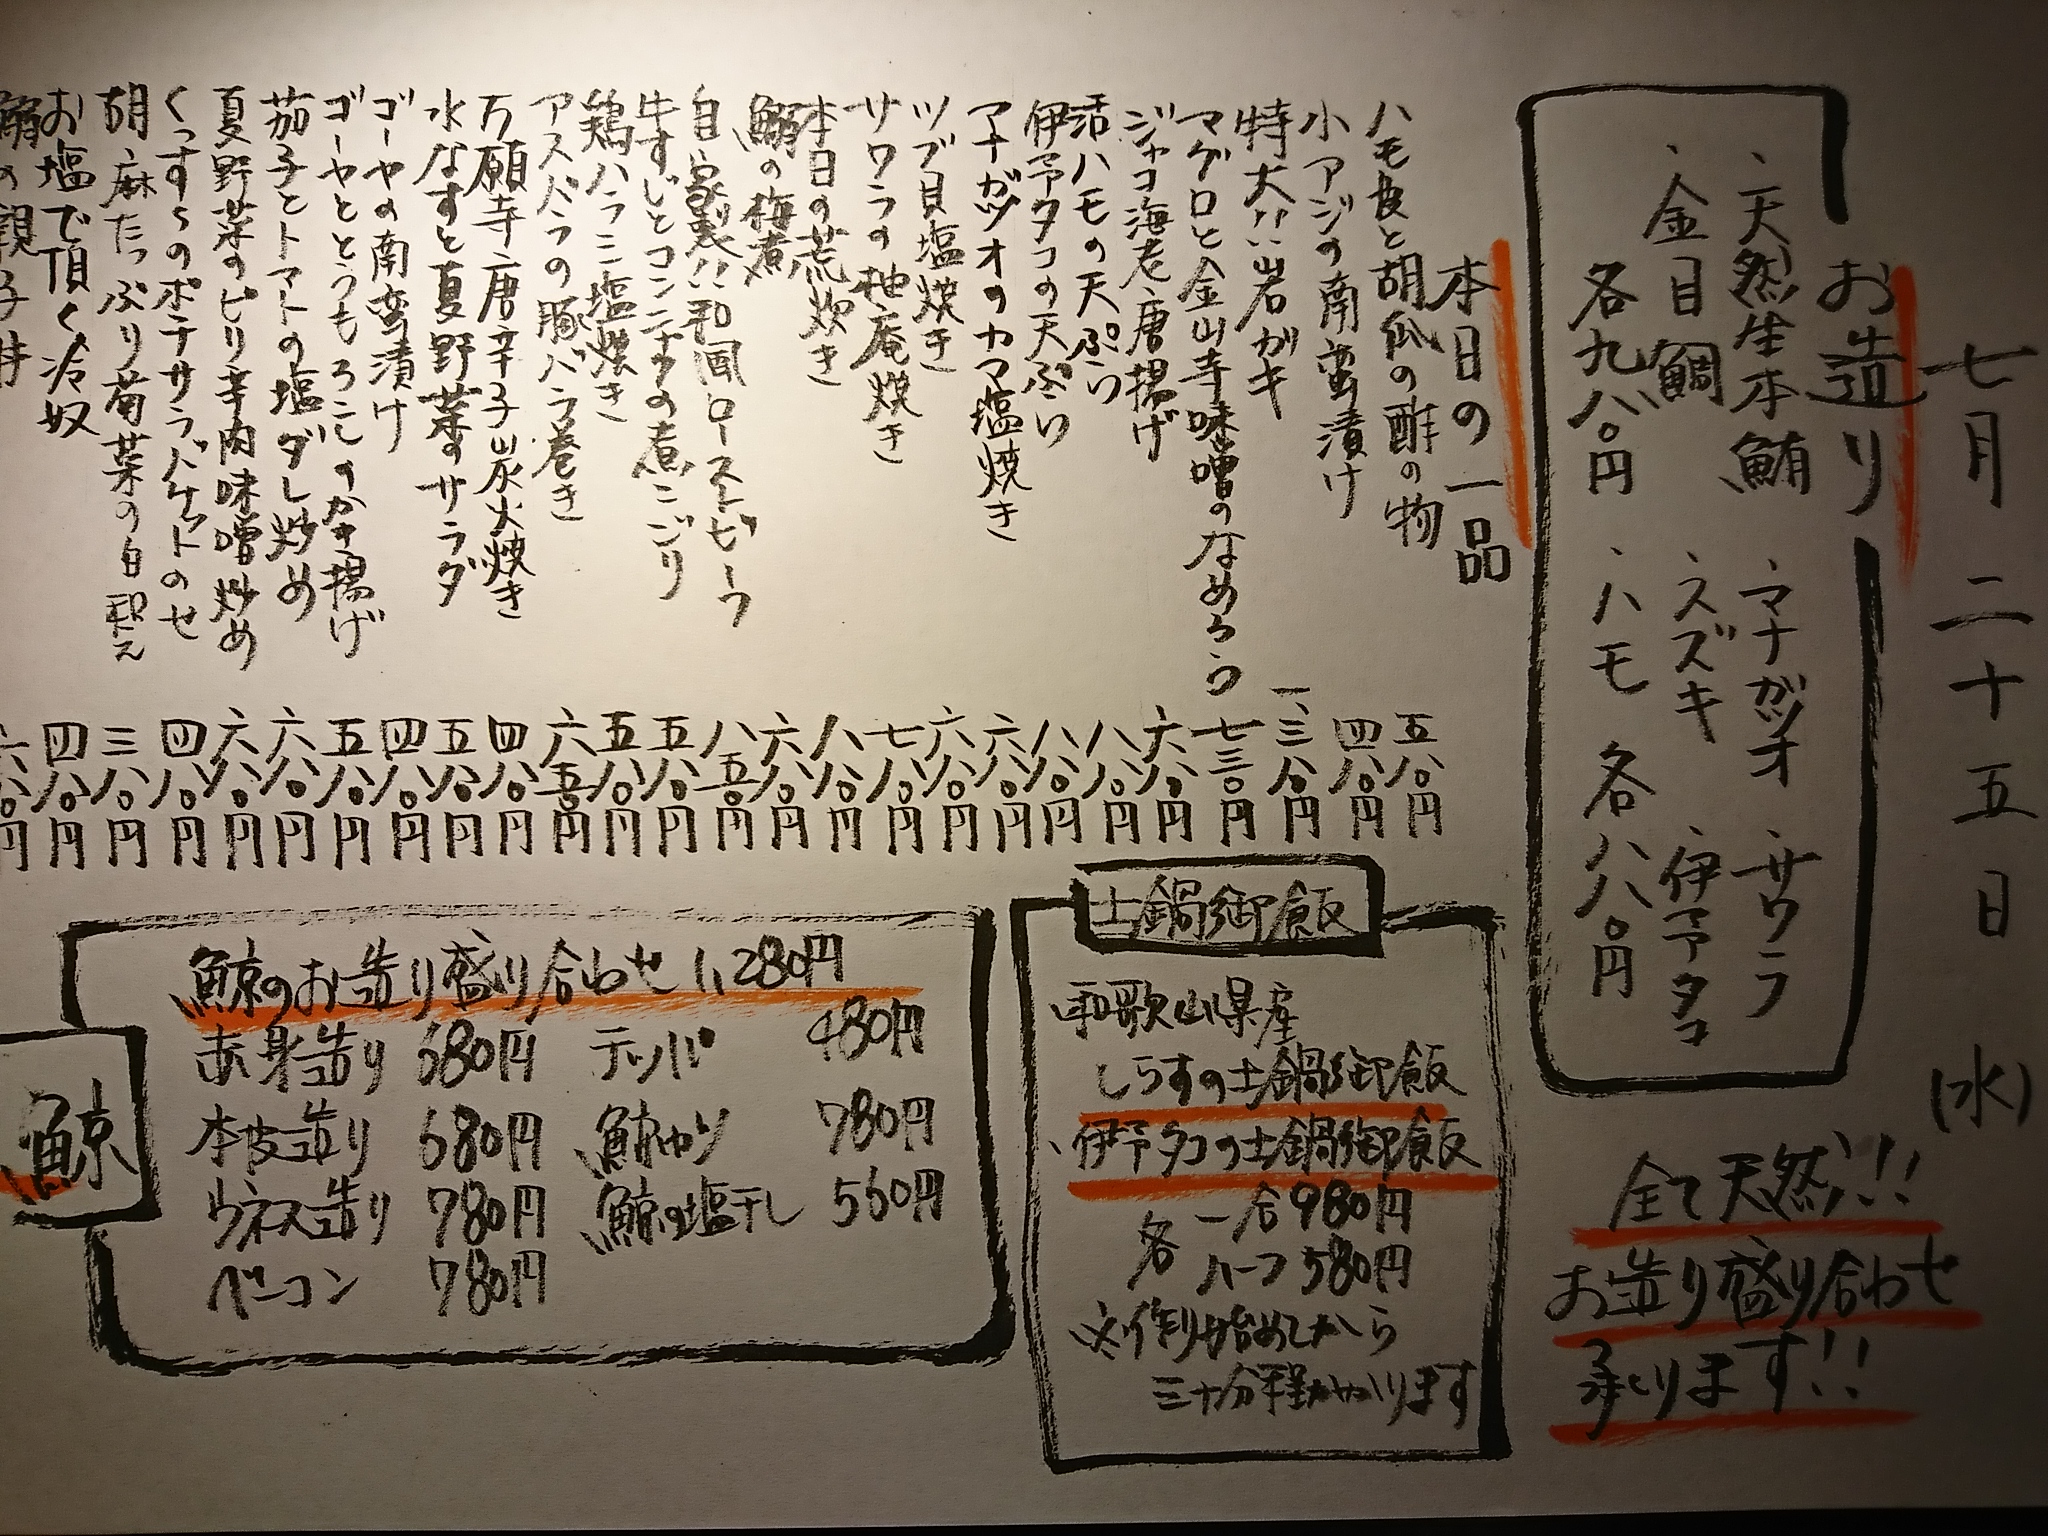 七月二十五日(水)
お造り
、天然生本鮪 、マナガツオ 、サワラ
、金目鯛 、スズキ 、伊予タコ
各九八〇円 、ハモ 各八八〇円
全て天然!!
お造り盛り合わせ
承ります!!
本日の一品
ハモ皮と胡瓜の酢の物 五八〇円
小アジの南蛮漬け 四八〇円
特大!!岩ガキ 一、三八〇円
マグロと金山寺味噌のなめろう 七三〇円
ジャコ海老唐揚げ 六八〇円
活ハモの天ぷら 八八〇円
伊予タコの天ぷら 八八〇円
マナガツオのカマ塩焼き 六八〇円
ツブ貝塩焼き 六八〇円
サワラの柚庵焼き 七八〇円
本日の荒炊き 八八〇円
鰯の梅煮 六八〇円
自家製!!和風ローストビーフ 八五〇円
牛すじとコンニャクの煮こごり 五八〇円
鶏ハラミ塩焼き 五八〇円
アスパラの豚バラ巻き 六五〇円
万願寺唐辛子炭火焼き 四八〇円
水なすと夏野菜のサラダ 五八〇円
ゴーヤの南蛮漬け 四八〇円
ゴーヤととうもろこしのかき揚げ 五八〇円
茄子とトマトの塩ダレ炒め 六八〇円
夏野菜のピリ辛肉味噌炒め 六八〇円
くっすらのポテサラバケットのせ 四八〇円
胡麻たっぷり菊菜の白和え 三八〇円
お塩で頂く冷奴 四八〇円
の親子丼 六八〇円
土鍋御飯
、和歌山県産
しらすの土鍋御飯
、伊予タコの土鍋御飯
各 一合980円
ハーフ580円
※作り始めてから
三十分程かかります
鯨
鯨のお造り盛り合わせ 1,280円
赤身造り 680円 テッパ 480円
本皮造り 680円 鯨カツ 780円
ウネス造り 780円 鯨の塩干し 560円
ベーコン 780円